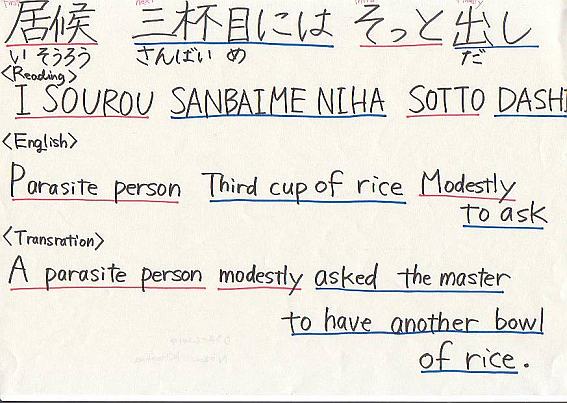 居候 三杯目には そっと出し
いそうろう さんばいめ だ
<Reading>
I SOUROU SANBAIME NIHA SOTTO DASHI
<English>
Parasite person Third cup of rice Modestly
to ask
<Transration>
A parasite person modestly asked the master
to have another bowl
of rice.